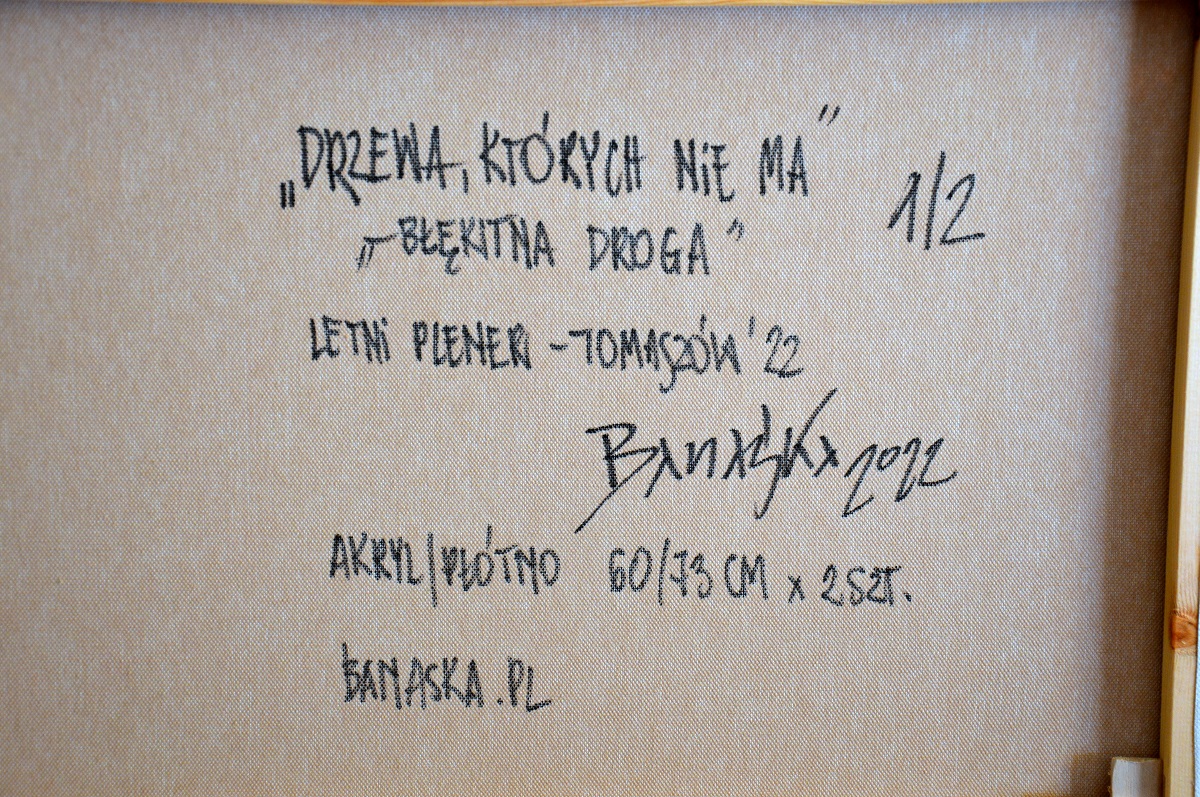 „DRZEWA, KTÓRYCH NIE MA” 1/2
„BŁĘKITNA DROGA”
LETNI PLENER - TOMASZÓW '22
BANAŚKA 2022
AKRYL/PŁÓTNO 60/73 CM x 2 SZT.
BANASKA.PL